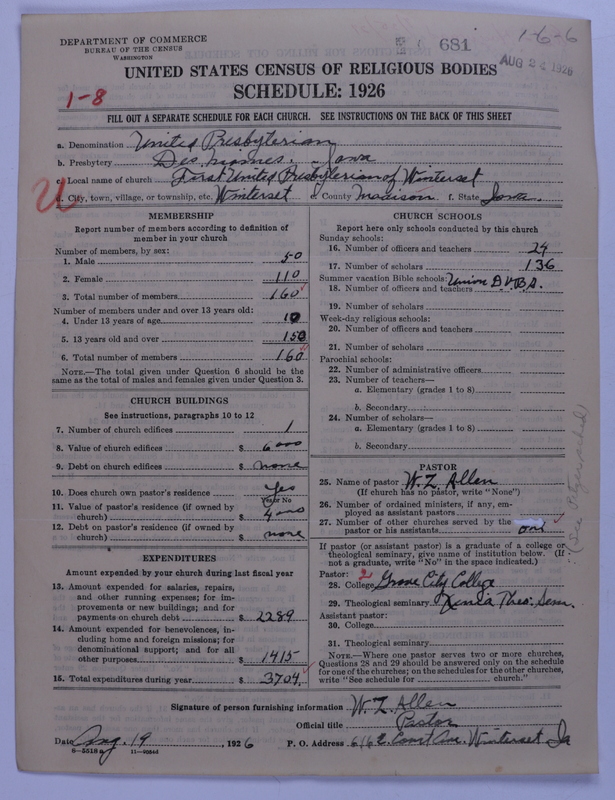 DEPARTMENT OF COMMERCE
BUREAU OF THE CENSUS
WASHINGTON
681
1-6-6
AUG 24 1926
UNITED STATES CENSUS OF RELIGIOUS BODIES
SCHEDULE: 1926
1-8
FILL OUT A SEPARATE SCHEDULE FOR EACH CHURCH. SEE INSTRUCTIONS ON THE BACK OF THIS SHEET
a. Denomination United Presbyterian
b. Presbytery Des Moines. Iowa
c. Local name of church First United Presbyterian of Winterset
d. City, town, village, or township, etc. Winterset e. County Madison f. State Iowa.
MEMBERSHIP
Report number of members according to definition of
member in your church
Number of members, by sex:
1. Male 50
2. Female 110
3. Total number of members 160
Number of members under and over 13 years old:
4. Under 13 years of age 10
5. 13 years old and over 150
6. Total number of members 160
NOTE.—The total given under Question 6 should be
same as the total of males and females given under Question 3.
CHURCH BUILDINGS
See instructions, paragraphs 10 to 12
7. Number of church edifices 1
8. Value of church edifices $ 6000
9. Debt on church edifices $ none
10. Does church own pastor's residence Yes
Yes or No
11. Value of pastor's residence (if owned by
church) $ 4000
12. Debt on pastor's residence (if owned by
church) $ none
EXPENDITURES
Amount expended by your church during last fiscal year
13. Amount expended for salaries, repairs,
and other running expenses; for im-
provements or new buildings; and for
payments on church debt $ 2289
14. Amount expended for benevolences, in-
cluding home and foreign missions; for
denominational support; and for all
other purposes $ 1415
15. Total expenditures during year $ 3704.
CHURCH SCHOOLS
Report here only schools conducted by this church
Sunday schools:
16. Number of officers and teachers 24
17. Number of scholars 136
Summer vacation Bible schools: Union D.V.B.S.
18. Number of officers and teachers
19. Number of scholars
Week-day religious schools:
20. Number of officers and teachers
21. Number of scholars
Parochial schools:
22. Number of administrative officers
23. Number of teachers—
a. Elementary (grades 1 to 8)
b. Secondary
24. Number of scholars—
a. Elementary (grades 1 to 8)
b. Secondary
PASTOR
25. Name of pastor W. Z. Allen
(If church has no pastor, write "None")
26. Number of ordained ministers, if any, em-
ployed as assistant pastors
27. Number of other churches served by the
pastor or his assistants one
If pastor (or assistant pastor) is a graduate of a college or
theological seminary, give name of institution below. (If
not a graduate, write "No" in the space indicated.)
Pastor: 2
28. College Grove City College
29. Theological seminary Xenia Theo. Sem.
Assistant pastor:
30. College
31. Theological seminary
NOTE.—Where one pastor serves two or more churches,
Questions 28 and 29 should be answered only on the schedule
for one of the churches; on the schedules for the other churches,
write "See schedule for church."
Signature of person furnishing information W. Z. Allen
Official title Pastor
Date Aug. 19, 1926 P. O. Address 616 E. Court Ave. Winterset Ia
6—5518a 11—9954d